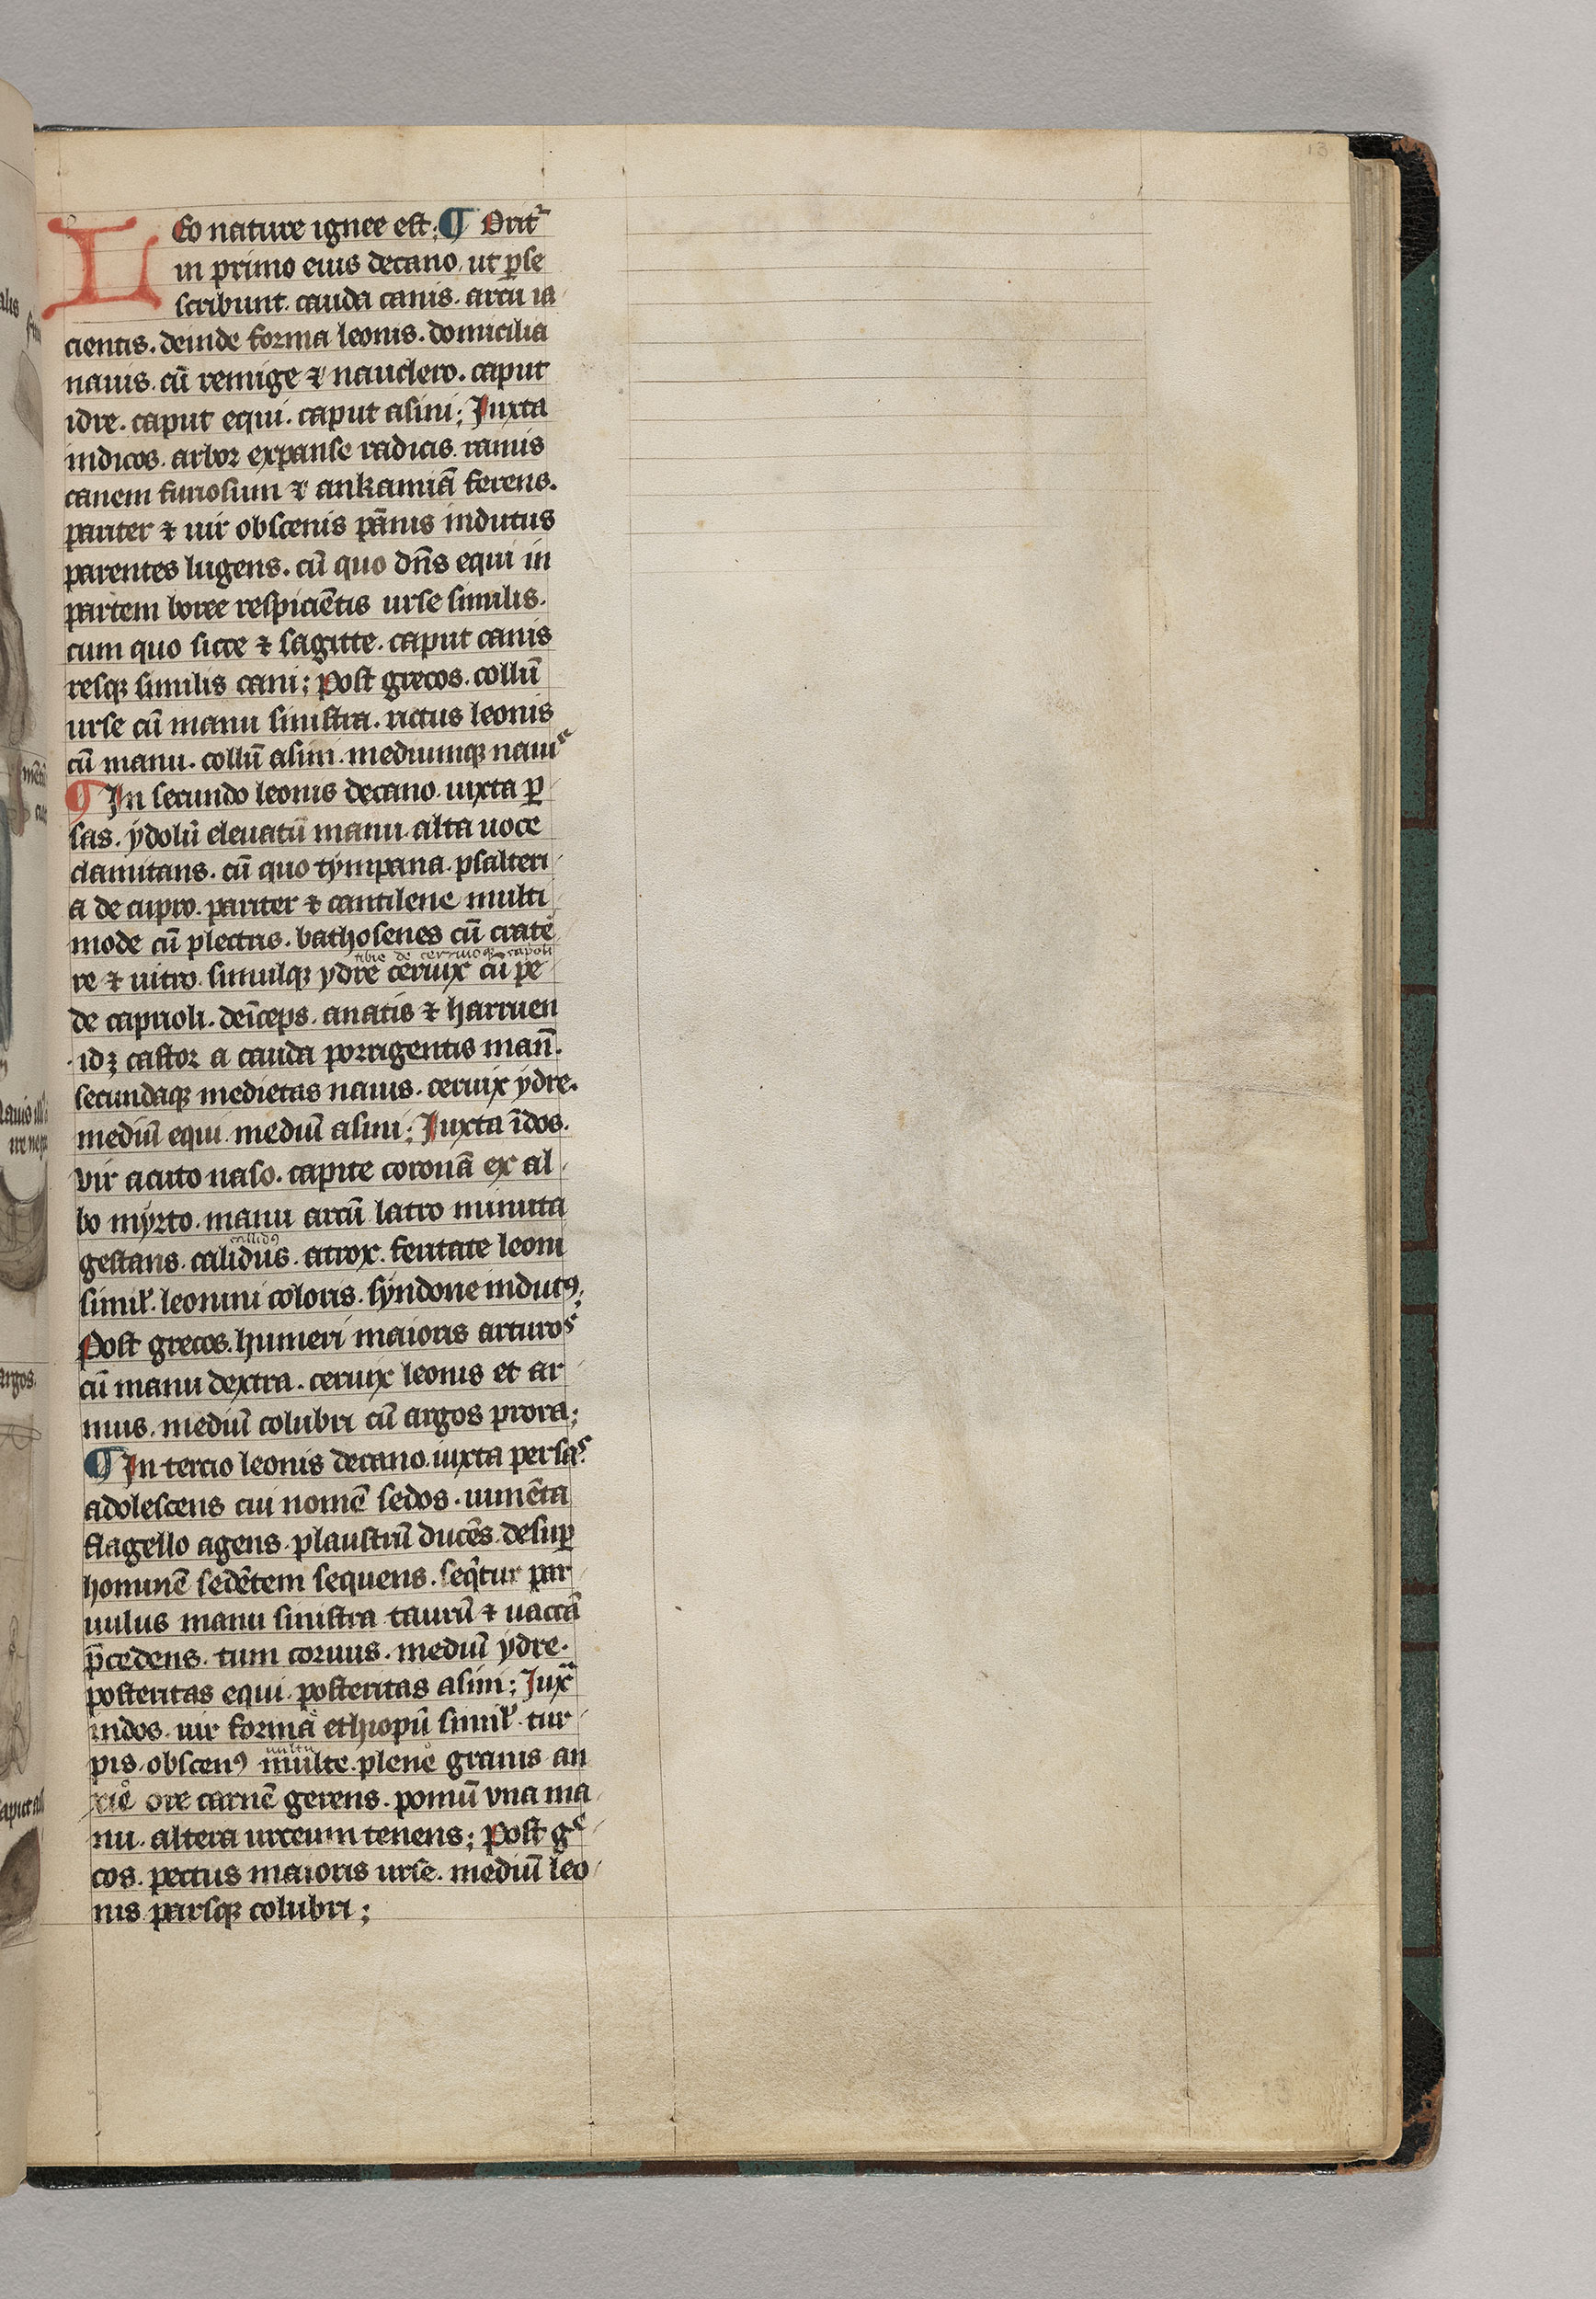 13
Leo nature ignee est; ¶ Orit᷑
in primo eius decano. ut ꝑse
scribunt. cauda canis. arcu ia
cientis. deinde forma leonis. domicilia
nauis. cū remige ⁊ nauclero. caput
idre. caput equi. caput asini; Juxta
indicos. arbor expanse radicis. ramis
canem furiosum ⁊ ankamiā ferens.
pariter ⁊ uir obscenis pānis indutus
parentes lugens. cū quo dn̄s equi in
partem boree respiciētis urse similis.
cum quo sicce ⁊ sagitte. caput canis
resqꝫ similis cani; Post grecos. collū
urse cū manu sinistra. rictus leonis
cū manu. collū asini. mediumqꝫ nauis
¶ In secundo leonis decano. iuxta ꝑ
sas. ydolū eleuatū manu. alta uoce
clamitans. cū quo tympana. psalteri
a de cupro. pariter ⁊ cantilene multi
mode cū plectris. bathosenes cū crate
re ⁊ uitro. simulqꝫ ydre ceruix cū pe
de caprioli. deīceps. anatis ⁊ harruen
.idꝫ castor a cauda porrigentis man̄.
secundaqꝫ medietas nauis. ceruix ydre.
mediū equi. mediū asini; Juxta īdos.
vir acuto naso. capite coronā ex al
bo myrto. manu arcū latro minuta
callidꝯ
gestans. calidus. atrox. feritate leoni
simil'. leonini coloris. syndone indutꝯ;
Post grecos. humeri maioris arturos
cū manu dextra. ceruix leonis et ar
mus. mediū colubri cū argos prora;
¶ In tercio leonis decano. iuxta persas.
adolescens cui nomē sedos. iumēta
flagello agens. plaustrū ducēs. desuꝑ
hominē sedētem sequens. seq̄tur par
uulus manu sinistra taurū ⁊ uaccā
p̄cedens. tum coruus. mediū ydre.
posteritas equi. posteritas asini; Juxᵃ
indos. uir forma ethiopū simil'. tur
multu
pis. obscenꝯ multe. plene grauis an
xie ore carnē gerens. pomū vna ma
nu. altera urceum tenens; Post gᵉ
cos. pectus maioris urse. mediū leo
nis parsqꝫ colubri;